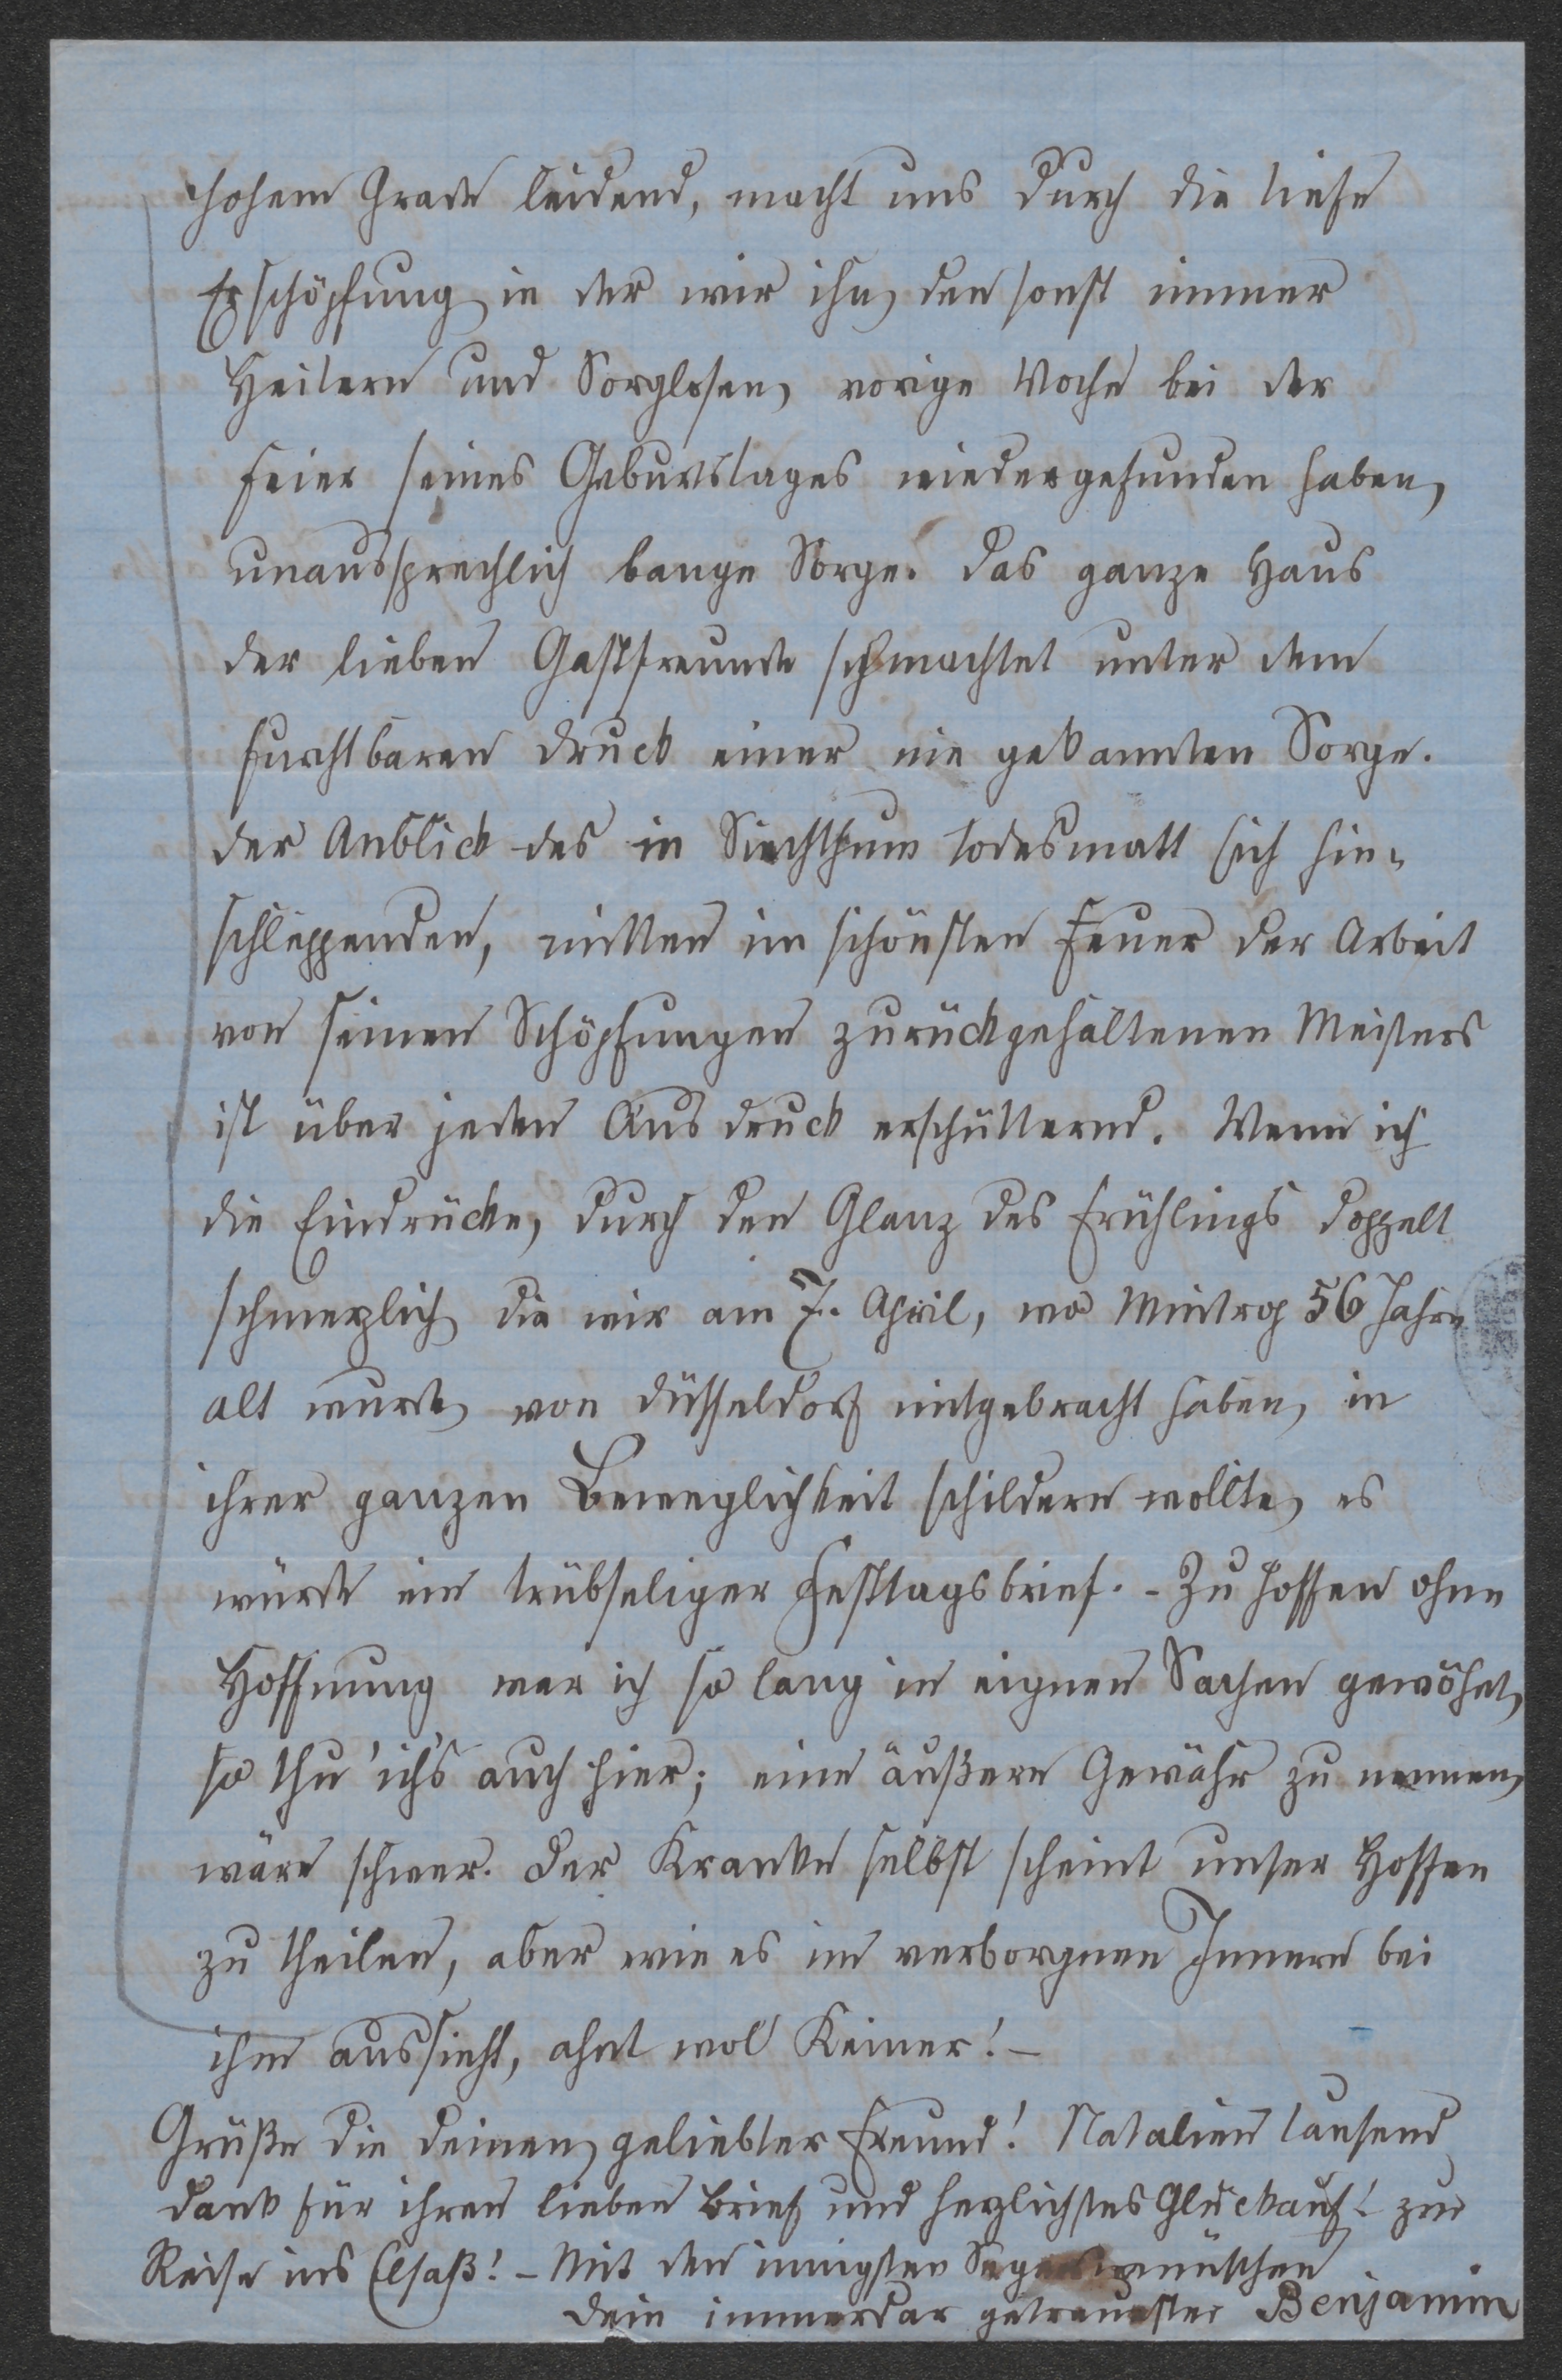 hohem Grade leidend, macht uns durch die tiefe
Erschöpfung in der wir ihn, den sonst immer
Heitern und Sorglosen, vorige Woche bei der
Feier seines Geburtstages wiedergefunden haben,
unaussprechlich bange Sorge. Das ganze Haus
der lieben Gastfreunde schmachtet unter dem
furchtbaren Druck einer nie gekannten Sorge.
Der Anblick des in Siechthum todesmatt sich hin-
schleppenden, mitten im schönsten Feuer der Arbeit
von seinen Schöpfungen zurückgehaltenen Meisters
ist über jeden Ausdruck erschütternd. Wenn ich
die Eindrücke, durch den Glanz des Frühlings doppelt
schmerzlich die wir am 7. April, wo Mintrop 56 Jahre
alt wurde, von Düsseldorf mitgebracht haben, in
ihrer ganzen Beweglichkeit schildern wollte, es
würde ein trübseliger Festtagsbrief. - Zu hoffen ohne
Hoffnung war ich so lang in eignen Sachen gewöhnt,
so thu' ich's auch hier; eine äußere Gewähr zu nennen,
wäre schwer. Der Kranke selbst scheint unser Hoffen
zu theilen, aber wie es im verborgnen Innern bei
ihm aussieht, ahnt wol Keiner! -
Grüße die Deinen, geliebter Freund! Natalien tausend
Dank für ihren lieben Brief und herzlichstes Glückauf! zur
Reise ins Elsaß! - Mit den innigsten Segenswünschen
Dein immerdar getreuester Benjamin